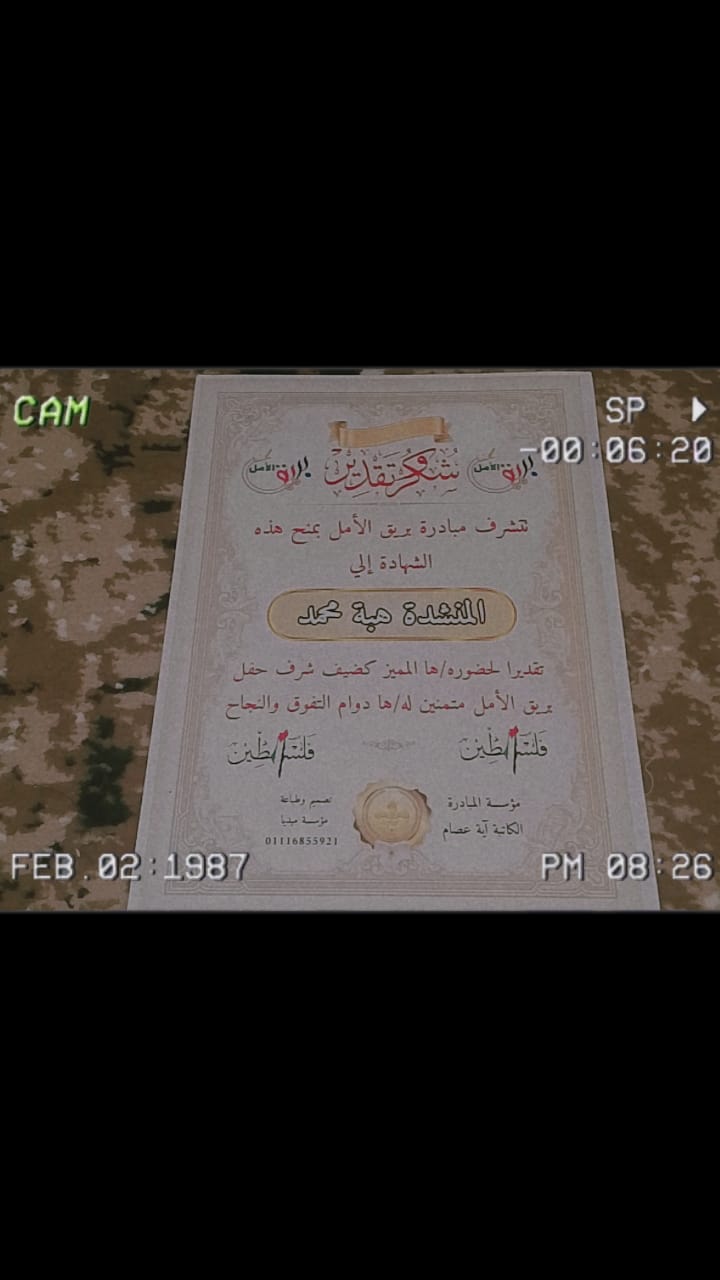 CAM
SP
-00:06:20
شكر وتقدير
بريق الأمل
بريق الأمل
تتشرف مبادرة بريق الأمل بمنح هذه
الشهادة إلي
المنشدة هبة محمد
تقديرا لحضوره/ها المميز كضيف شرف حفل
بريق الأمل متمنين له/ها دوام التفوق والنجاح
فلسطين
فلسطين
مؤسسة المبادرة
الكاتبة آية عصام
تصميم وطباعة
مؤسسة ميديا
01116855921
FEB.02:1987
PM 08:26